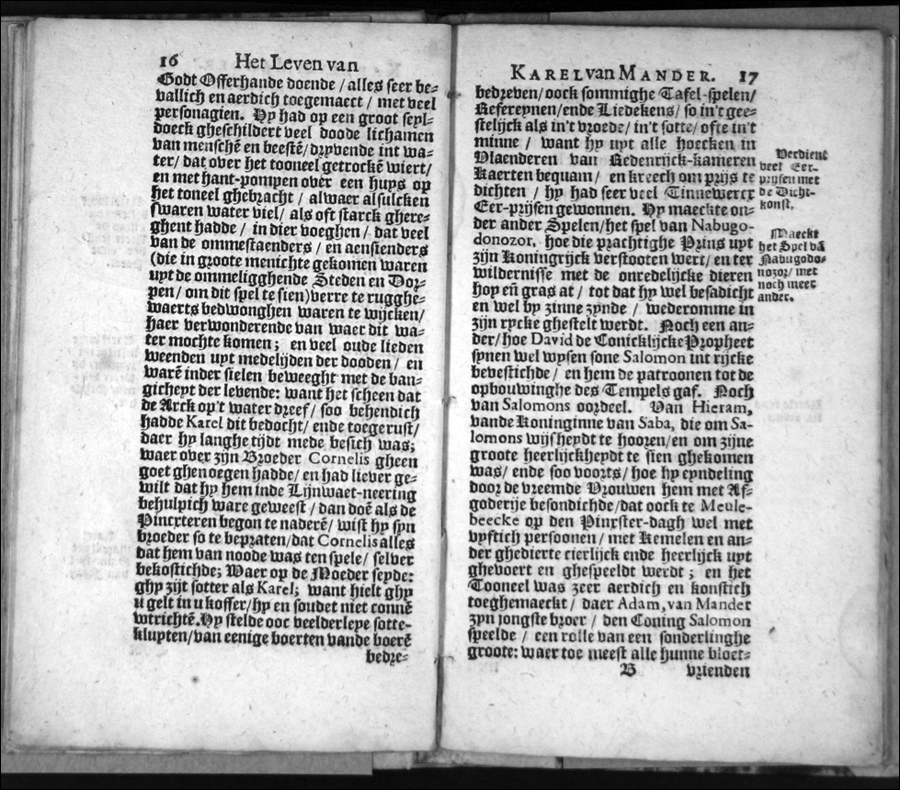 16 Het Leven van
Godt Offerhande doende / alles seer be-
vallich en aerdich toegemaect / met veel
personagien. Hy had op een groot seyl-
doeck gheschildert veel doode lichamen
van menschẽ en beestẽ / dryvende int wa-
ter / dat over het tooneel getrockẽ wiert /
en met hant-pompen over een huys op
het toneel ghebracht / alwaer alsulcken
swaren water viel / als oft starck ghere-
ghent hadde / in dier voeghen / dat veel
van de ommestaenders / en aensienders
(die in groote menichte gekomen waren
uyt de ommeligghende Steden en Dor-
pen / om dit spel te sien) verre te rugghe-
waerts bedwonghen waren te wijcken /
haer verwonderende van waer dit wa-
ter mochte komen; en veel oude lieden
weenden uyt medelijden der dooden / en
warẽ inder sielen beweeght met de ban-
gicheyt der levende: want het scheen dat
de Arck op't water dreef / soo behendich
hadde Karel dit bedocht / ende toegerust /
daer hy langhe tijdt mede besich was;
waer over zijn Broeder Cornelis gheen
goet ghenoegen hadde / en had liever ge-
wilt dat hy hem inde Lijnwaet-neering
behulpich ware geweest / dan doẽ als de
Pincxteren begon te naderẽ / wist hy syn
broeder so te bepraten / dat Cornelis alles
dat hem van noode was ten spele / selver
bekostichde; Waer op de Moeder seyde:
ghy zijt sotter als Karel; want hielt ghy
u gelt in u koffer / hy en soudet niet connẽ
wtrichtẽ. Hy stelde ooc veelderleye sotte-
kluyten / van eenige boerten vande boerẽ
bedre-
KAREL van MANDER. 17
bedreven / oock sommighe Tafel-spelen /
Refereynen / ende Liedekens / so in't gee-
stelijck als in't vroede / in't sotte / ofte in't
minne / want hy uyt alle hoecken in
Vlaenderen van Redenrijck-kameren
Kaerten bequam / en kreech om prijs te
dichten / hy had seer veel Tinnewercx
Eer-prijsen gewonnen. Hy maeckte on-
der ander Spelen / het spel van Nabugo-
donozor, hoe die prachtighe Prins uyt
zijn Koningrijck verstooten wert / en ter
wildernisse met de onredelijcke dieren
hoy eñ gras at / tot dat hy wel besadicht
en wel by zinne zynde / wederomme in
zijn rycke ghestelt werdt. Noch een an-
der / hoe David de Conicklijcke Propheet
synen wel wysen sone Salomon int rijcke
bevestichde / en hem de patroonen tot de
opbouwinghe des Tempels gaf. Noch
van Salomons oordeel. Van Hieram,
vande Koninginne van Saba, die om Sa-
lomons wijsheydt te hooren / en om zijne
groote heerlijckheydt te sien ghekomen
was / ende soo voorts / hoe hy eyndeling
door de vreemde Vrouwen hem met Af-
goderije besondichde / dat oock te Meule-
beecke op den Pinxster-dagh wel met
vyftich persoonen / met Kemelen en an-
der ghedierte cierlijck ende heerlijck uyt
ghevoert en ghespeeldt werdt; en het
Tooneel was zeer aerdich en konstich
toeghemaeckt / daer Adam, van Mander
zyn jongste broer / den Coning Salomon
speelde / een rolle van een sonderlinghe
groote: waer toe meest alle hunne bloet-
B vrienden
Verdient
veel Eer-
prijsen met
de Dicht-
konst.
Maeckt
het Spel vã
Nabugodo-
nozor / met
noch meer
ander.